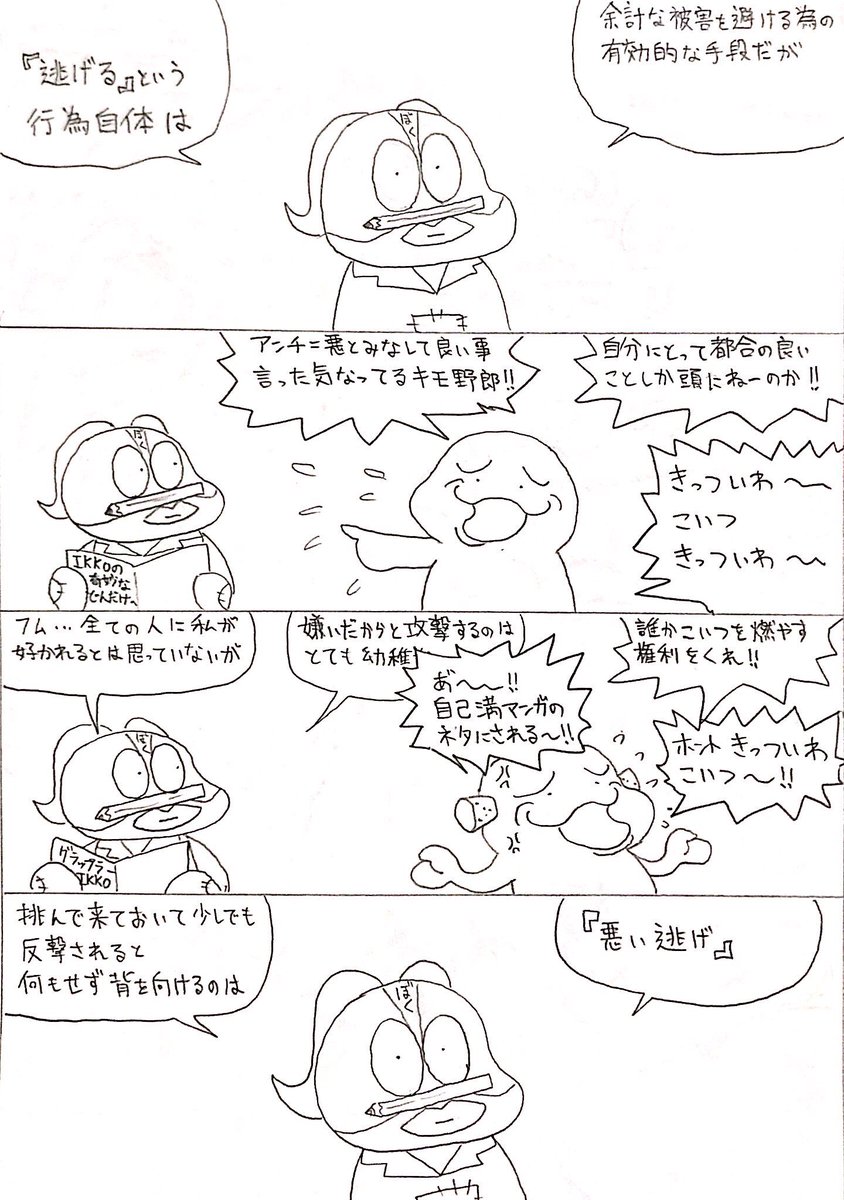 『逃げる』という
行為自体は
余計な被害も避ける為の
有効的な手段だが
ぼく
アンチ=悪とみなして良い事
言った気なってるキモ野郎!!
自分にとって都合の良い
ことしか頭にねーのか!!
きっついわ〜〜
こいつ
きっついわ〜〜
ぼく
IKKOの
奇妙な
せんだけ〜
フム…全ての人に私が
好かれるとは思っていないが
嫌いだからと攻撃するのは
とても幼稚
あ゛〜〜!!
自己満マンガの
ネタにされる〜!!
誰かこいつを燃やす
権利をくれ!!
ホント きっついわ
こいつ〜!!
ぼく
グラップラー
IKKO
挑んで来ておいて少しでも
反撃されると
何もせず背を向けるのは
『悪い逃げ』
ぼく